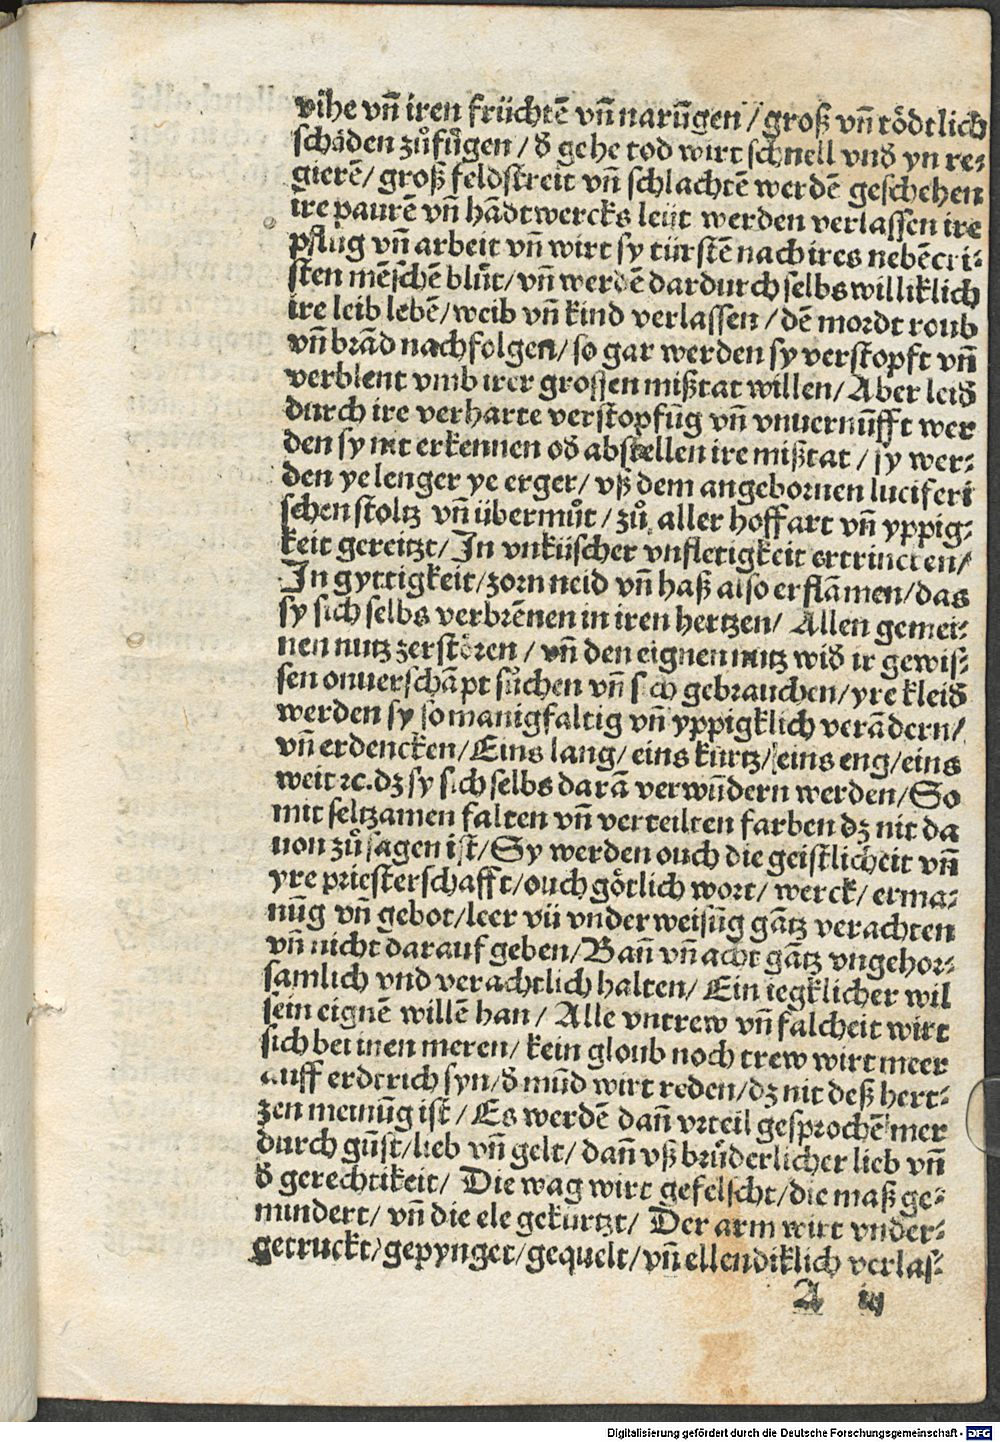 vihe vn̄ iren früchtē vn̄ narūgen / groß vn̄ tödtlich
schaden zůfůgen / đ gehe tod wirt schnell vnđ yn re⸗
gierē / groß feldstreit vn̄ schlachtē werdē geschehen
ire paurē vn̄ hādtwercks leüt werden verlassen ire
pflůg vn̄ arbeit vn̄ wirt sy türstē nach ires nebēcri⸗
sten mēschē blůt / vn̄ werdē dardurch selbs williklich
ire leib lebē / weib vn̄ kind verlassen / dē mordt roub
vn̄ brād nachfolgen / so gar werden sy verstopft vn̄
verblent vmb irer grossen mißtat willen / Aber leiđ
durch ire verharte verstopfūg vn̄ vnuernūfft wer
den sy nit erkennen ođ abstellen ire mißtat / sy wer⸗
den ye lenger ye erger / vß dem angebornen luciferi
schen stoltz vn̄ übermůt / zů aller hoffart vn̄ yppig⸗
keit gereitzt / In vnküscher vnfletigkeit ertrincken /
In gyttigkeit / zorn neid vn̄ haß also erflāmen / das
sy sich selbs verbrēnen in iren hertzen / Allen gemei⸗
nen nutz zerstören / vn̄ den eignen nutz wiđ ir gewis⸗
sen onuerschāpt sůchen vn̄ sich gebrauchen / yre kleiđ
werden sy so manigfaltig vn̄ yppigklich verādern /
vn̄ erdencken / Eins lang / eins kurtz / eins eng / eins
weit ꝛc. dz sy sich selbs darā verwūdern werden / So
mit seltzamen falten vn̄ verteilten farben dz nit da
uon zů sagen ist / Sy werden ouch die geistlicheit vn̄
yre priesterschafft / ouch götlich wort / werck / erma⸗
nūg vn̄ gebot / leer vn̄ vnder weisūg gātz verachten
vn̄ nicht darauf geben / Bañ vn̄ acht gātz vngehor⸗
samlich vnd verachtlich halten / Ein iegklicher wil
sein eignē willē han / Alle vntrew vn̄ falcheit wirt
sich bei inen meren / kein gloub noch trew wirt meer
auff erdtrich syn / đ mūd wirt reden / dz nit deß hert⸗
zen meinūg ist / Es werdē dañ vrteil gesprochē mer
durch gūst / lieb vn̄ gelt / dañ vß brůderlicher lieb vn̄
đ gerechtikeit / Die wag wirt gefelscht / die maß ge⸗
mindert / vn̄ die ele gekurtzt / Der arm wirt vnder⸗
getruckt / gepynget / gequelt / vn̄ ellendiklich verlas⸗
A iij
Digitalisierung gefördert durch die Deutsche Forschungsgemeinschaft - DFG